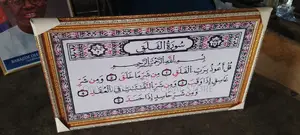 سُورَةُ الْفَلَقِ
بِسْمِ اللَّهِ الرَّحْمَٰنِ الرَّحِيمِ
قُلْ أَعُوذُ بِرَبِّ الْفَلَقِ ۝ مِن شَرِّ مَا خَلَقَ ۝ وَمِن شَرِّ
غَاسِقٍ إِذَا وَقَبَ ۝ وَمِن شَرِّ النَّفَّٰثَٰتِ فِي الْعُقَدِ
۝ وَمِن شَرِّ حَاسِدٍ إِذَا حَسَدَ ۝